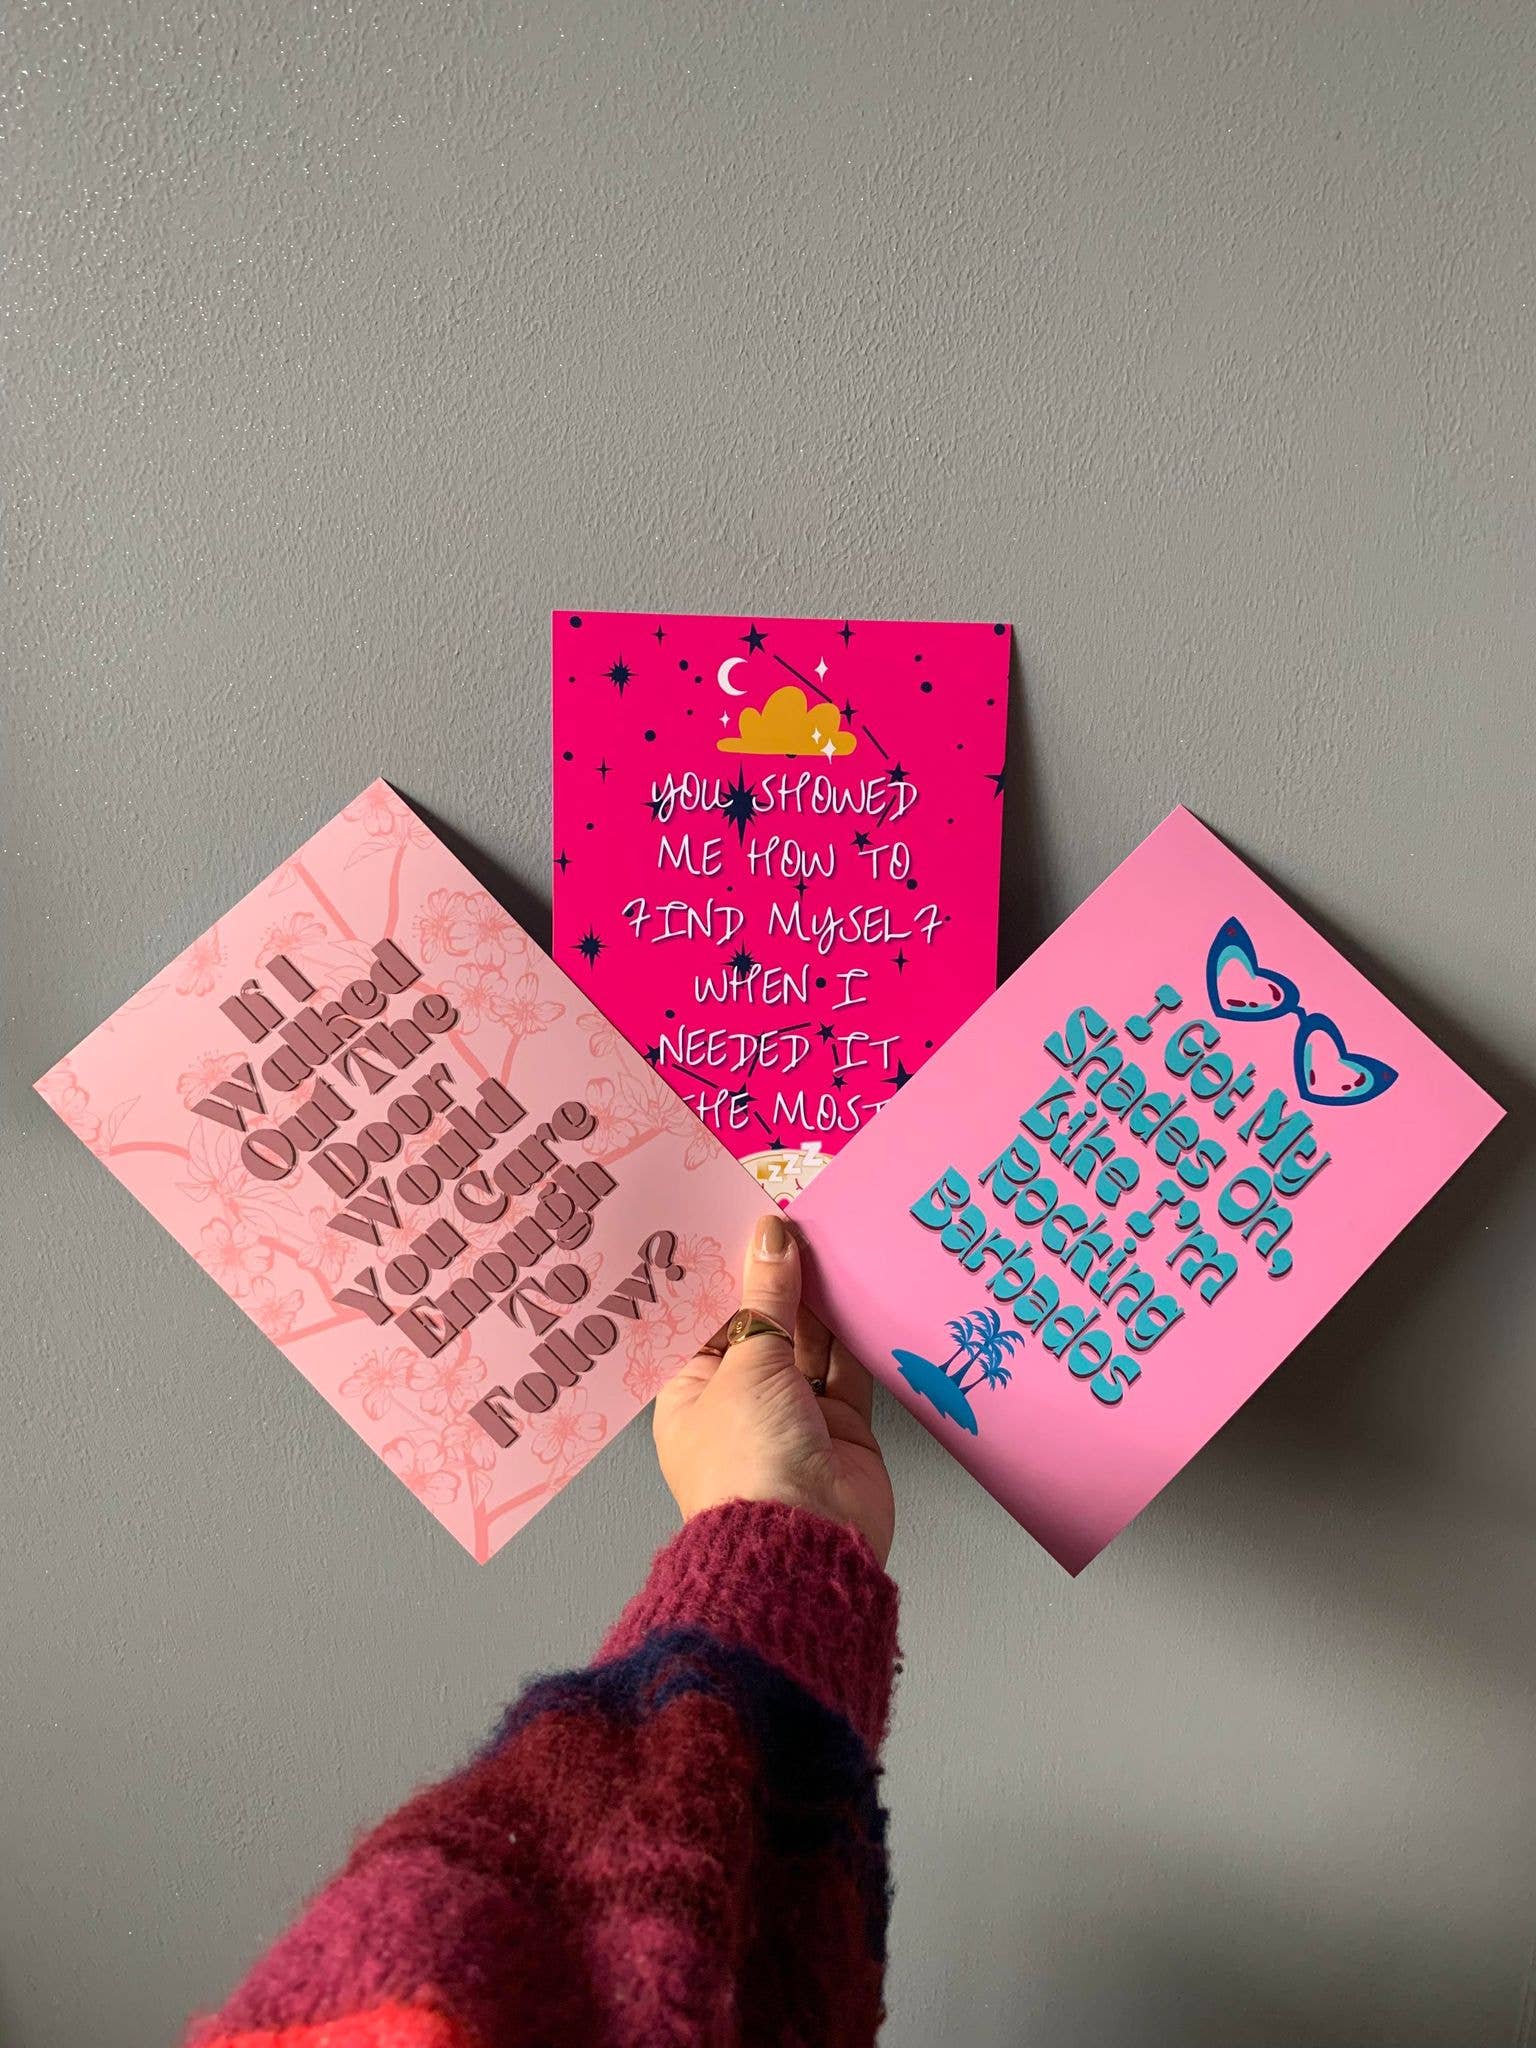 If I
Walked
Out The
Door
Would
You Care
Enough
To
Follow?
YOU SHOWED
ME HOW TO
FIND MYSELF
WHEN I
NEEDED IT
THE MOST
zzz
I Got My
Shades On,
Like I'm
Rocking
Barbados